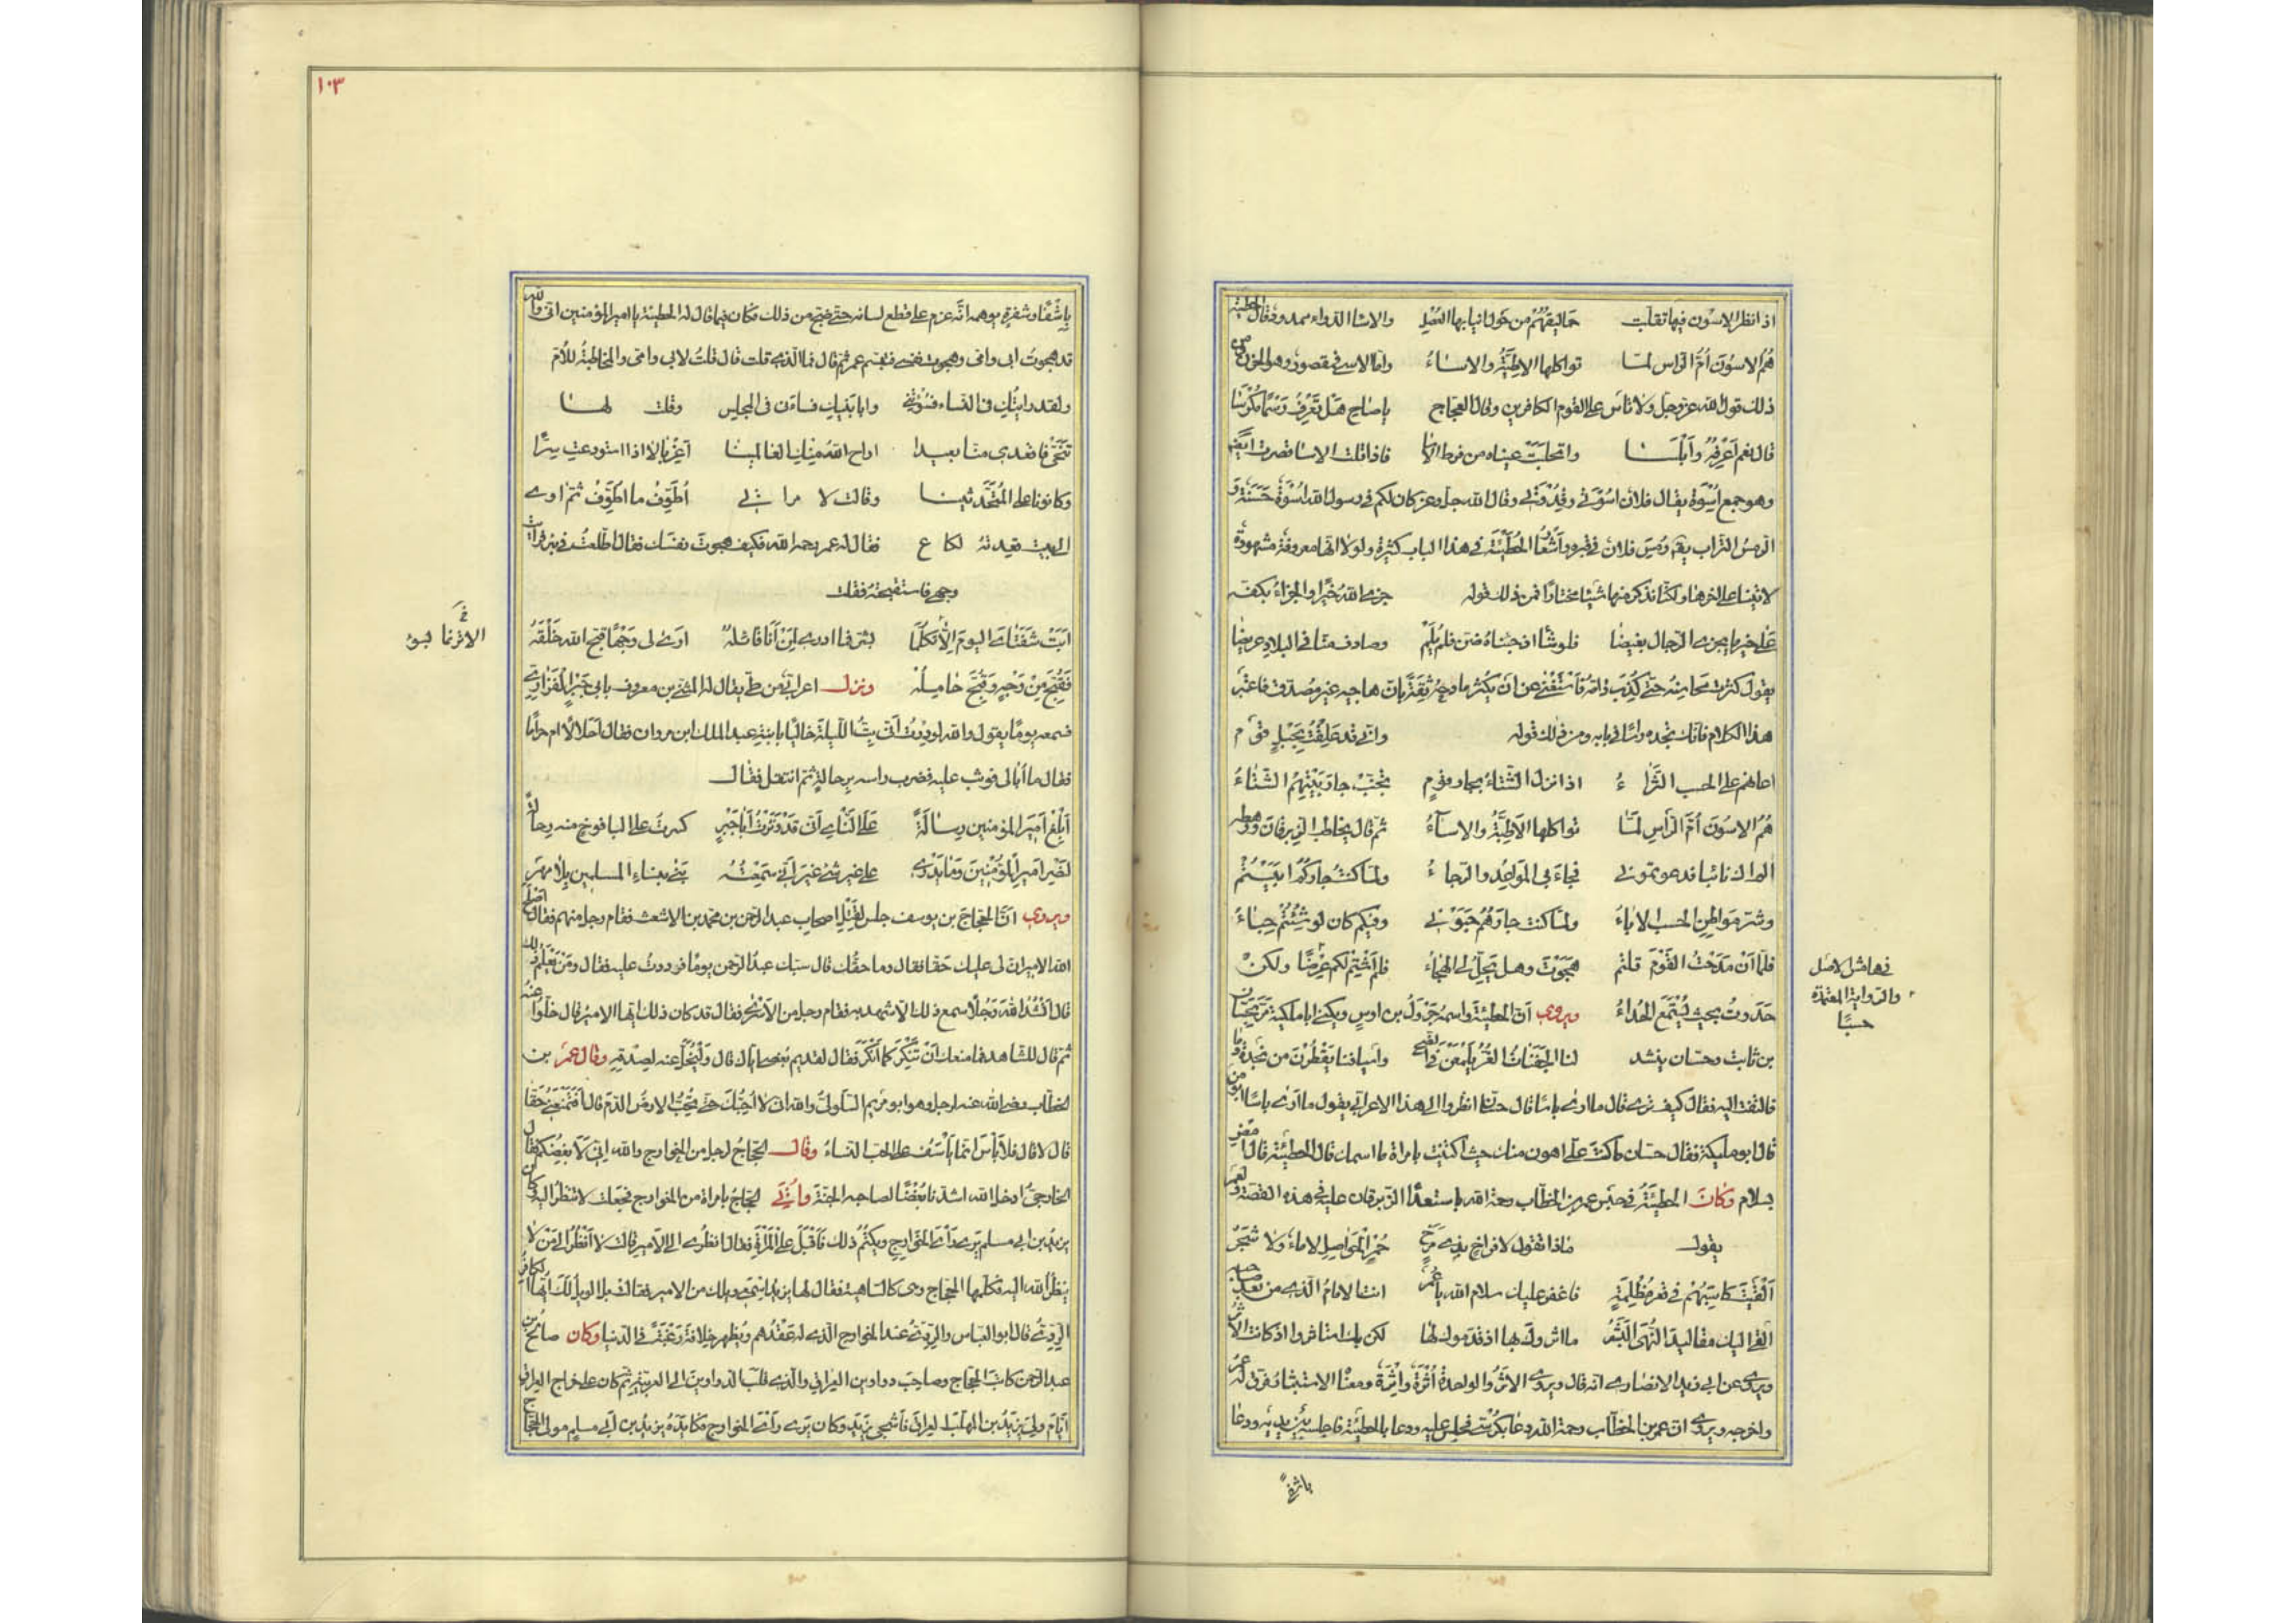 اذا نظر الاسون فيها تقلبت حماليقهم من هول انيابها العصل والاسا الدواء ممدود قال الحطيئة
هُمُ الاسُونَ اُمَّ الرّاس لمّا تواكلها الاطِبَّةُ والاساءُ وامّا الاسى فمقصور وهو الحزن من
ذلك قول الله عز وجل ولا تاس على القوم الكافرين وقال العجاج يا صاح هَل تَعرِفُ رَسمًا مُكرَسَا
قال نعم اَعرِفُهُ وَاَبلَسَا وانحلبت عيناه من فرط الاسا فاذا قلت الاسا قصرت ايضا
وهو جمع اُسْوة يقال فلان اسوتي وقُدْوَتي وقال الله جل وعز كان لكم في رسول الله اُسْوةٌ حَسَنةٌ و
الرمسُ التراب يقم رُمِسَ فلان في قبره واَشعارُ الحُطَيئة في هذا الباب كثيرة ولولا انها معروفة مشهورة
لاتينا على اخرها ولكنا نذكر منها شيئا مختارًا فمن ذلك قوله جزى الله خيرًا والجزاءُ بكفه
على خير ما يجزى الرجال بغيضا فلو شا اذ جئناه ضن فلم يُلَم وصادف منا في البلاد عريضا
يقول كثرت محاسنه حتى كُذِبَ ذامُّه فاستغنى عن ان يكثر مادحه ثقةً بان هاجيه غير مصدق فاعتبر
هذا الكلام فانك تجده راسًا في بابه ومن ذلك قوله واني قد علقت بحبل قوم
اعانهم على الحسب الثراءُ اذا نزل الشتاءُ بجار قومٍ تجنب جار بيتهم الشتاءُ
هُمُ الاسُونَ اُمَّ الرّأسِ لمّا تواكلها الاَطِبّةُ والاساءُ ثم قال يخاطب الزبرقان ورهطه
الم اك نائيا فدعوتموني فجاءَ بي المواعِدُ والرجاءُ ولما كنت جاركُمُ ابيتم
وشر مواطِن الحسب الاِباءُ ولما كنت جارَهُمُ حبوني وفيكم كان لو شئتم حِباءُ
فلمّا اَنْ مدَحتُ القومَ قلتم هجَوتَ وهل يَحِلُّ لي الهِجاءُ فلم اَشْتِم لكم عِرضًا ولكن
حَدَوتُ بحيث يُستَمَعُ الحُداءُ ويروى ان الحطيئة واسمه جَروَلُ بن اوسٍ ويكنى ابا مليكة مَرَّ بحسان
بن ثابت وحسان ينشد لنا الجَفَناتُ الغُرُّ يَلمَعْنَ في الضحى واسيافنا يَقطُرنَ من نجدة دما
فالتفت اليه فقال كيف ترى قال ما ارى باسًا قال حسان انظروا الى هذا الاعرابي يقول ما ارى باسًا ابو من
قال ابو مليكة فقال حسان ما كنت علَيّ اهون منك حيث اكتنيت بامراة ما اسمك قال الحطيئة قال امض
بسلام وكان الحطيئة في حبس عمر بن الخطاب رحمة الله باستعداء الزبرقان عليه في هذه القصة ولعمر
يقول ماذا تقول لافراخ بذي مَرَخٍ حُمْرِ الحَواصِل لا ماءٌ ولا شجر
اَلقَيتَ كاسِبَهُم في قعر مُظلِمةٍ فاغفر عليك سلام الله يا عمر انت الامام الذي من بعد صاحبه
القى اليك مقاليدَ النُهى البَشَرُ ما اثروك بها اذ قدموك لها لكن بك استاثروا اذ كانت الاثر
ويروى عن ابي زيد الانصاري انه قال ويروى الاثر والواحدة اُثرَة واِثرَة ومعنا الاستيثار فرق له عمر
واخرجه ويروى ان عمر بن الخطاب رحمة الله دعا بكرسي فجلس عليه ودعا بالحطيئة فاجلسه بين يديه ودعا
باشفًى
في هامش الاصل
والرواية المعتمدة
حسبًا
١٠٣
باشفًى وشفرة يوهمه انّه عزم على قطع لسانه حتى ضج من ذلك فكان فيما قال له الحطيئة يا امير المؤمنين اني والله
قد هجوتُ ابي وامي وهجوت نفسي فتبسم عمر ثم قال فما الذي قلت قال قلتُ لابي وامي والمخاطبةُ للاُم
ولقد رايتُكِ في النساء فسُؤتِني وابا بَنيكِ فساءني في المجلس وقلت لها
تَنَحَّي فاقعدي منّا بعيدا اراح الله منكِ العالمينا اَغِربالا اذا استودعتِ سِرًّا
وكانونا على المُتحدِّثينا وقال لامراتي اُطَوِّفُ ما اُطَوِّفُ ثم اوى
الى بيت قعيدتهُ لكاع فقال له عمر رحمه الله فكيف هجوت نفسك فقال اطّلعت في بئر فرايت
وجهي فاستقبحته فقلت
اَبَت شفَتاىَ اليومَ اِلا تكلّما بشر فما ادرى لِمَن اَنا قائلُه ارى لي وجهًا قبح الله خَلقَهُ
فقُبِّحَ مِن وجهٍ وقُبِّحَ حامِلُه ونزل اعرابيٌّ من طي يقال له المثنى بن معروف بابي جَبرٍ الفزاري
فسمعه يومًا يقول والله لوددت اني بِتُّ الليلة خاليًا بابنة عبد الملك ابن مروان فقال احلالا ام حرامًا
فقال ما اُبالي فوثب عليه فضرب راسه برحالةٍ ثم انتقل فقال
اَبلِغ اميرَ المؤمنين رسالةً على النّاي اَني قد وترتُ اَبا جَبرِ كسرتُ على اليافوخ منه رِحالةً
لنصر اميرِ المؤمنينَ وما يدري على غير شيء غيرَ اني سمعتُه يَنى بنساءِ المسلمين بِلا مَهرِ
ويروى انّ الحجاجَ بن يوسف جلس لِقتلِ اصحاب عبد الرحمن بن محمد بن الاشعث فقام رجل منهم فقال اصلح
الله الامير ان لي عليك حقا فقال وما حقُّك قال سبّك عبدُ الرحمن يومًا فرددتُ عليه فقال ومَن يَعلَمُ ذلك
قال اَنشُدُ اللهَ رجُلًا سمع ذلك الا شهد به فقام رجل من الاَسرى فقال قد كان ذلك ايّها الامير قال خلّوا عنه
ثم قال للشاهد فما منعك اَن تُنكِرَ كما اَنكَرَ فقال لقديم بُغضي اياك قال ويُخَلّى عنه لِصدقه وقال عمر بن
الخطاب رضي الله عنه لرجل وهو ابو مريم السلوليّ والله ان لا اُحِبُّكَ حتى تُحِبَّ الارضُ الدمَ قال اَفَتَمنَعُني حقًّا
قال لا قال فلا بأسَ انما يأسَفُ على الحب النساءُ وقال الحجاجُ لرجل من الخوارج والله اِني لاَبغُضُكم فقال
الخارجيُّ ادخل الله اشدّنا بُغضًا لصاحبه الجنة واُتِيَ الحجاجُ بامراة من الخوارج فجعلت لا تنظر اليه وكان
يزيد بن ابي مسلم يرى رأىَ الخوارج ويكتُمُ ذلك فاَقبلَ على المراة فقال انظُرى الى الامير قالت لا اَنظُر الى مَن لا
ينظُر الله اليه فكلّمها الحجاج وهي كالساهية فقال لها يزيد اسمعي ويلك من الامير فقالت بل الويل لك ايّها الكافر
الرِدِّىُّ قال ابو العباس والرِدِّىُّ عند الخوارج الذي له عَقدُهم ويُظهر خِلافَه رَغبَةً في الدنيا وكان صالحُ بن
عبد الرحمن كاتبَ الحجاج وصاحبَ دواوين العراق والذي قلب الدواوينَ الى العربية ثم كان على خراج العراق
ايّام ولِىَ يزيد بن المهلّب العراق فاَشجى يزيد وكان يرى رأىَ الخوارج فكايَدَهُ يزيدُ بن ابي مسلم مولى الحجاج